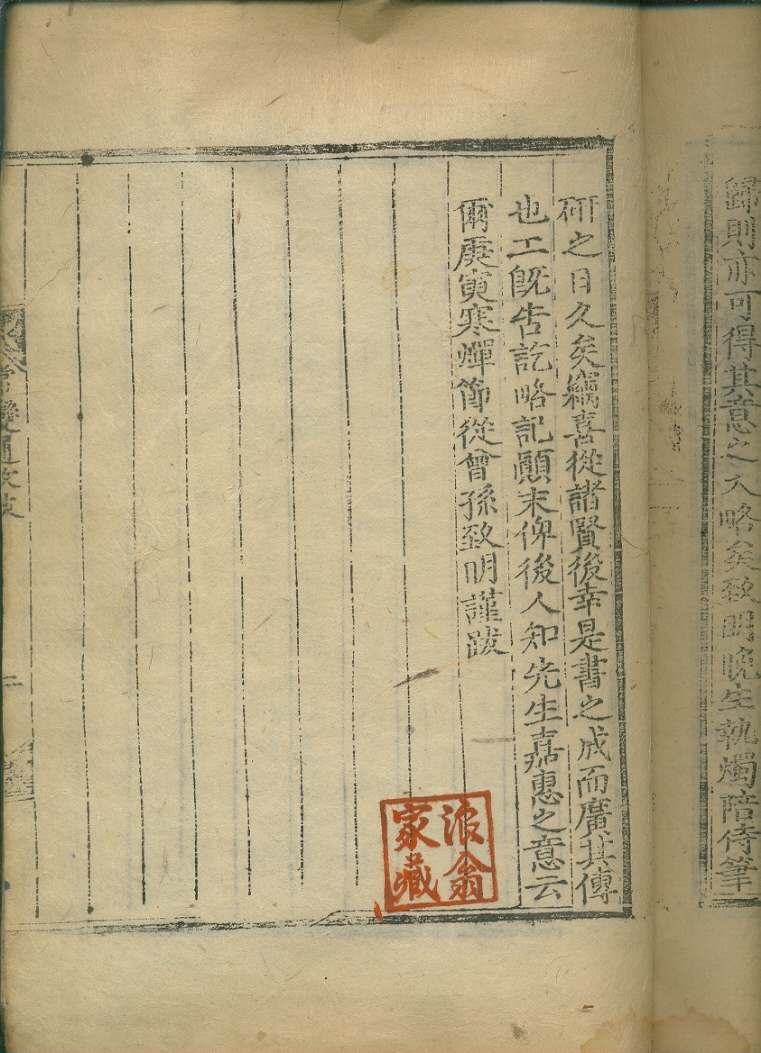 歸則亦可得其意之大略矣致明晚生執燭陪侍筆
硏之日久矣竊喜從諸賢後幸是書之成而廣其傳
也工旣告訖略記顚末俾後人知先生嘉惠之意云
爾庚寅寒燀節從曾孫致明謹跋
浪翁
家藏
常變通攷跋